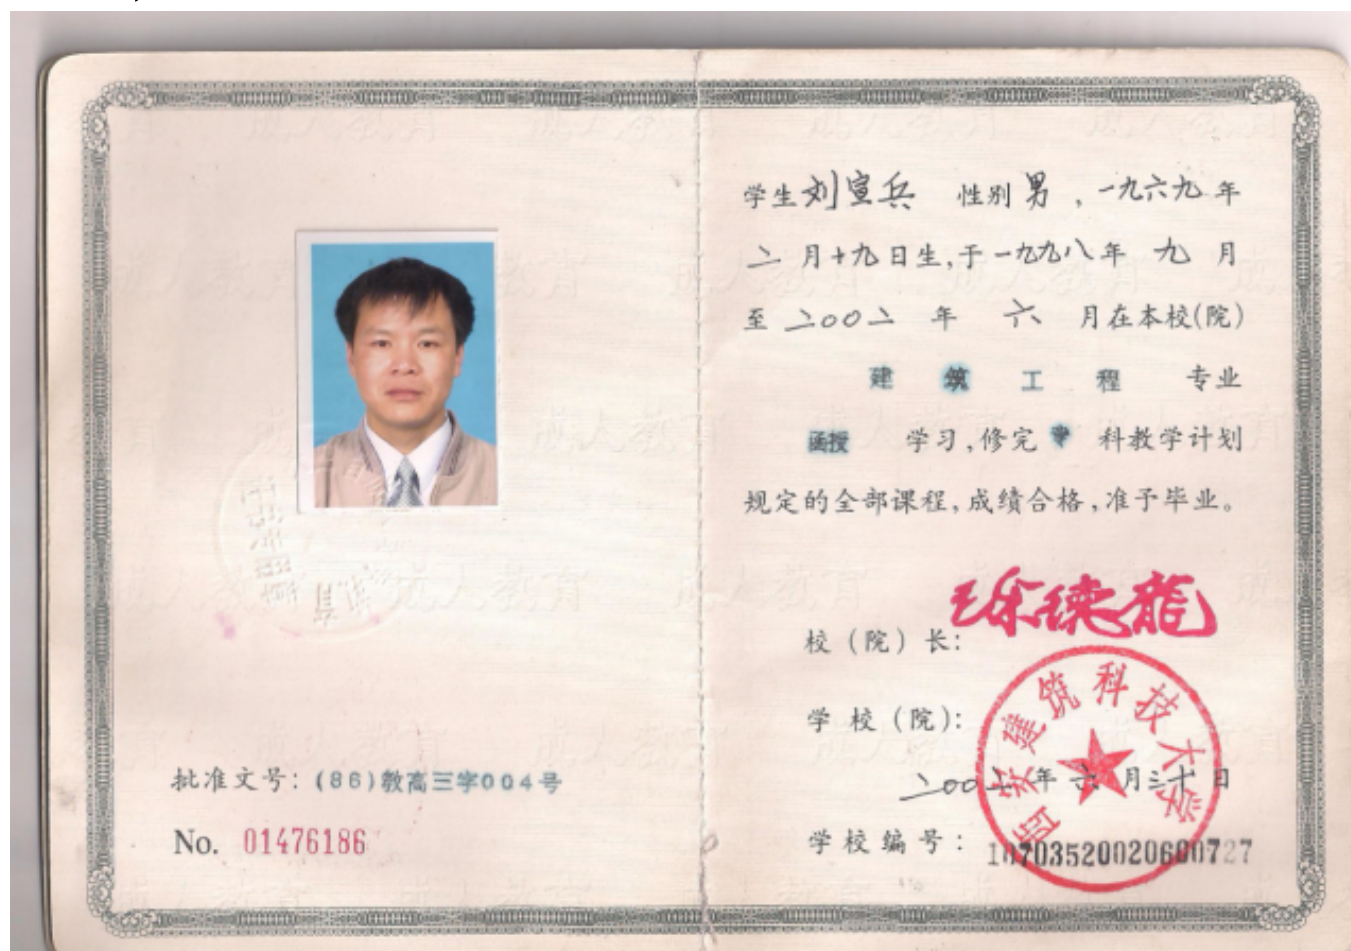 批准文号：(86)教高三字004号
No. 01476186
学生刘宣兵 性别男，一九六九年
二月十九日生，于一九九八年九月
至二00二年六月在本校(院)
建筑工程专业
函授学习，修完专科教学计划
规定的全部课程，成绩合格，准予毕业。
校（院）长：
学校（院）：
西安建筑科技大学
二00二年六月三十日
学校编号：10703520020600727
成人教育